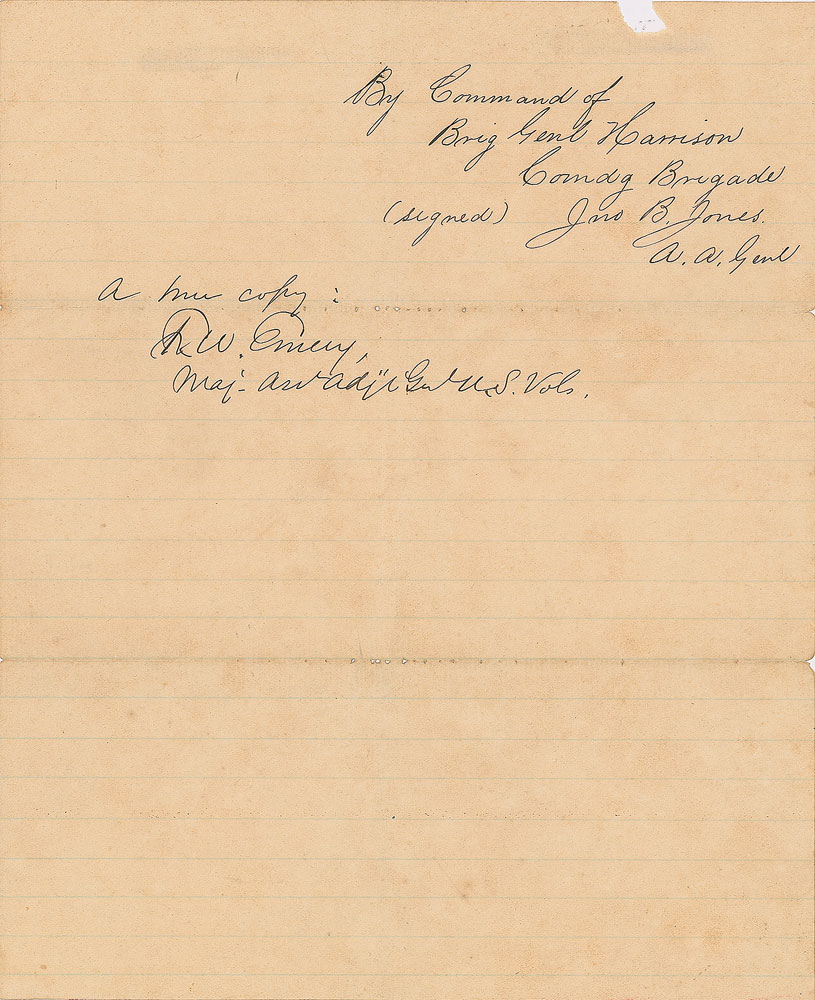 By Command of
Brig Genl Harrison
Comdg Brigade
(signed) Jno B. Jones.
A. A. Genl
A true copy :
R. W. Emery,
Maj. Asst Adjt Genl U.S. Vols.